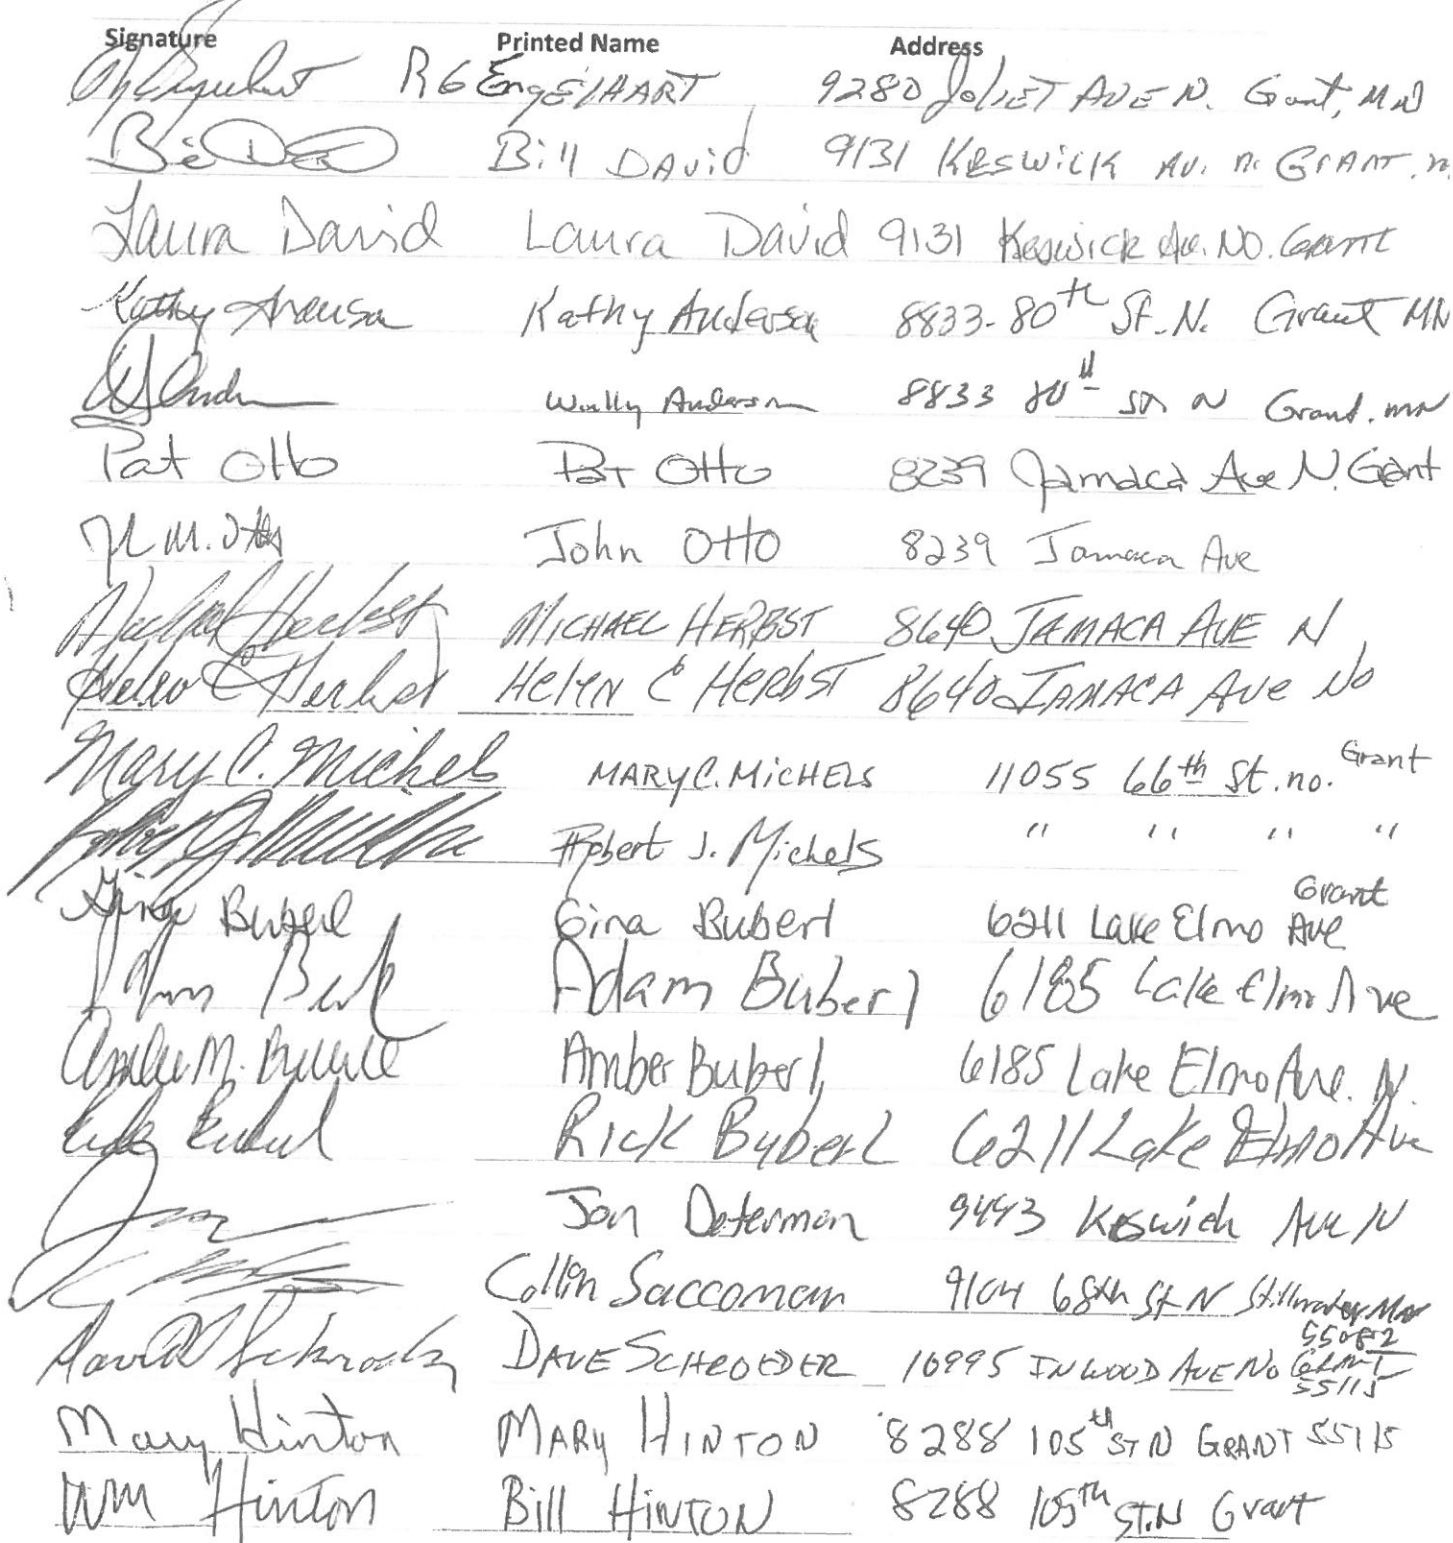 Signature Printed Name Address
RG EngElHART 9280 JoLiET AVE N. Grant, MN
Bill DAvid 9131 KESWiCK AV. n. GRANT
Laura David Laura David 9131 Keswick Ave. NO. Grant
Kathy Anderson Kathy Anderson 8833-80th St. N. Grant MN
Wally Anderson 8833 80th St N Grant. mn
Pat Otto PaT Otto 8239 Jamaca Ave N. Grant
John Otto 8239 Jamaca Ave
Michael Herbst MICHAEL HERBST 8640 JAMACA AVE N
Helen C Herbst HelEN C HERbST 8640 JAMACA Ave No
Mary C. Michels MARY C. MiCHELS 11055 66th St. no. Grant
Robert J. Michels " " " "
Gina Buberl Gina Buberl 6211 Lake Elmo Ave Grant
Adam Buberl 6185 Lake Elmo Ave
Amber M. Buberl Amber Buberl 6185 Lake Elmo Ave. N.
Rick Buberl 6211 Lake Elmo Ave
Jon Determan 9443 Keswick Ave N
Collin Saccoman 9104 68th St N Stillwater MN 55082
David Schroeder DAVE SCHROEDER 10995 INWOOD AVE No GRANT 55115
Mary Hinton MARY HINTON 8288 105th ST N GRANT 55115
Wm Hinton Bill HINTON 8288 105th ST.N Grant